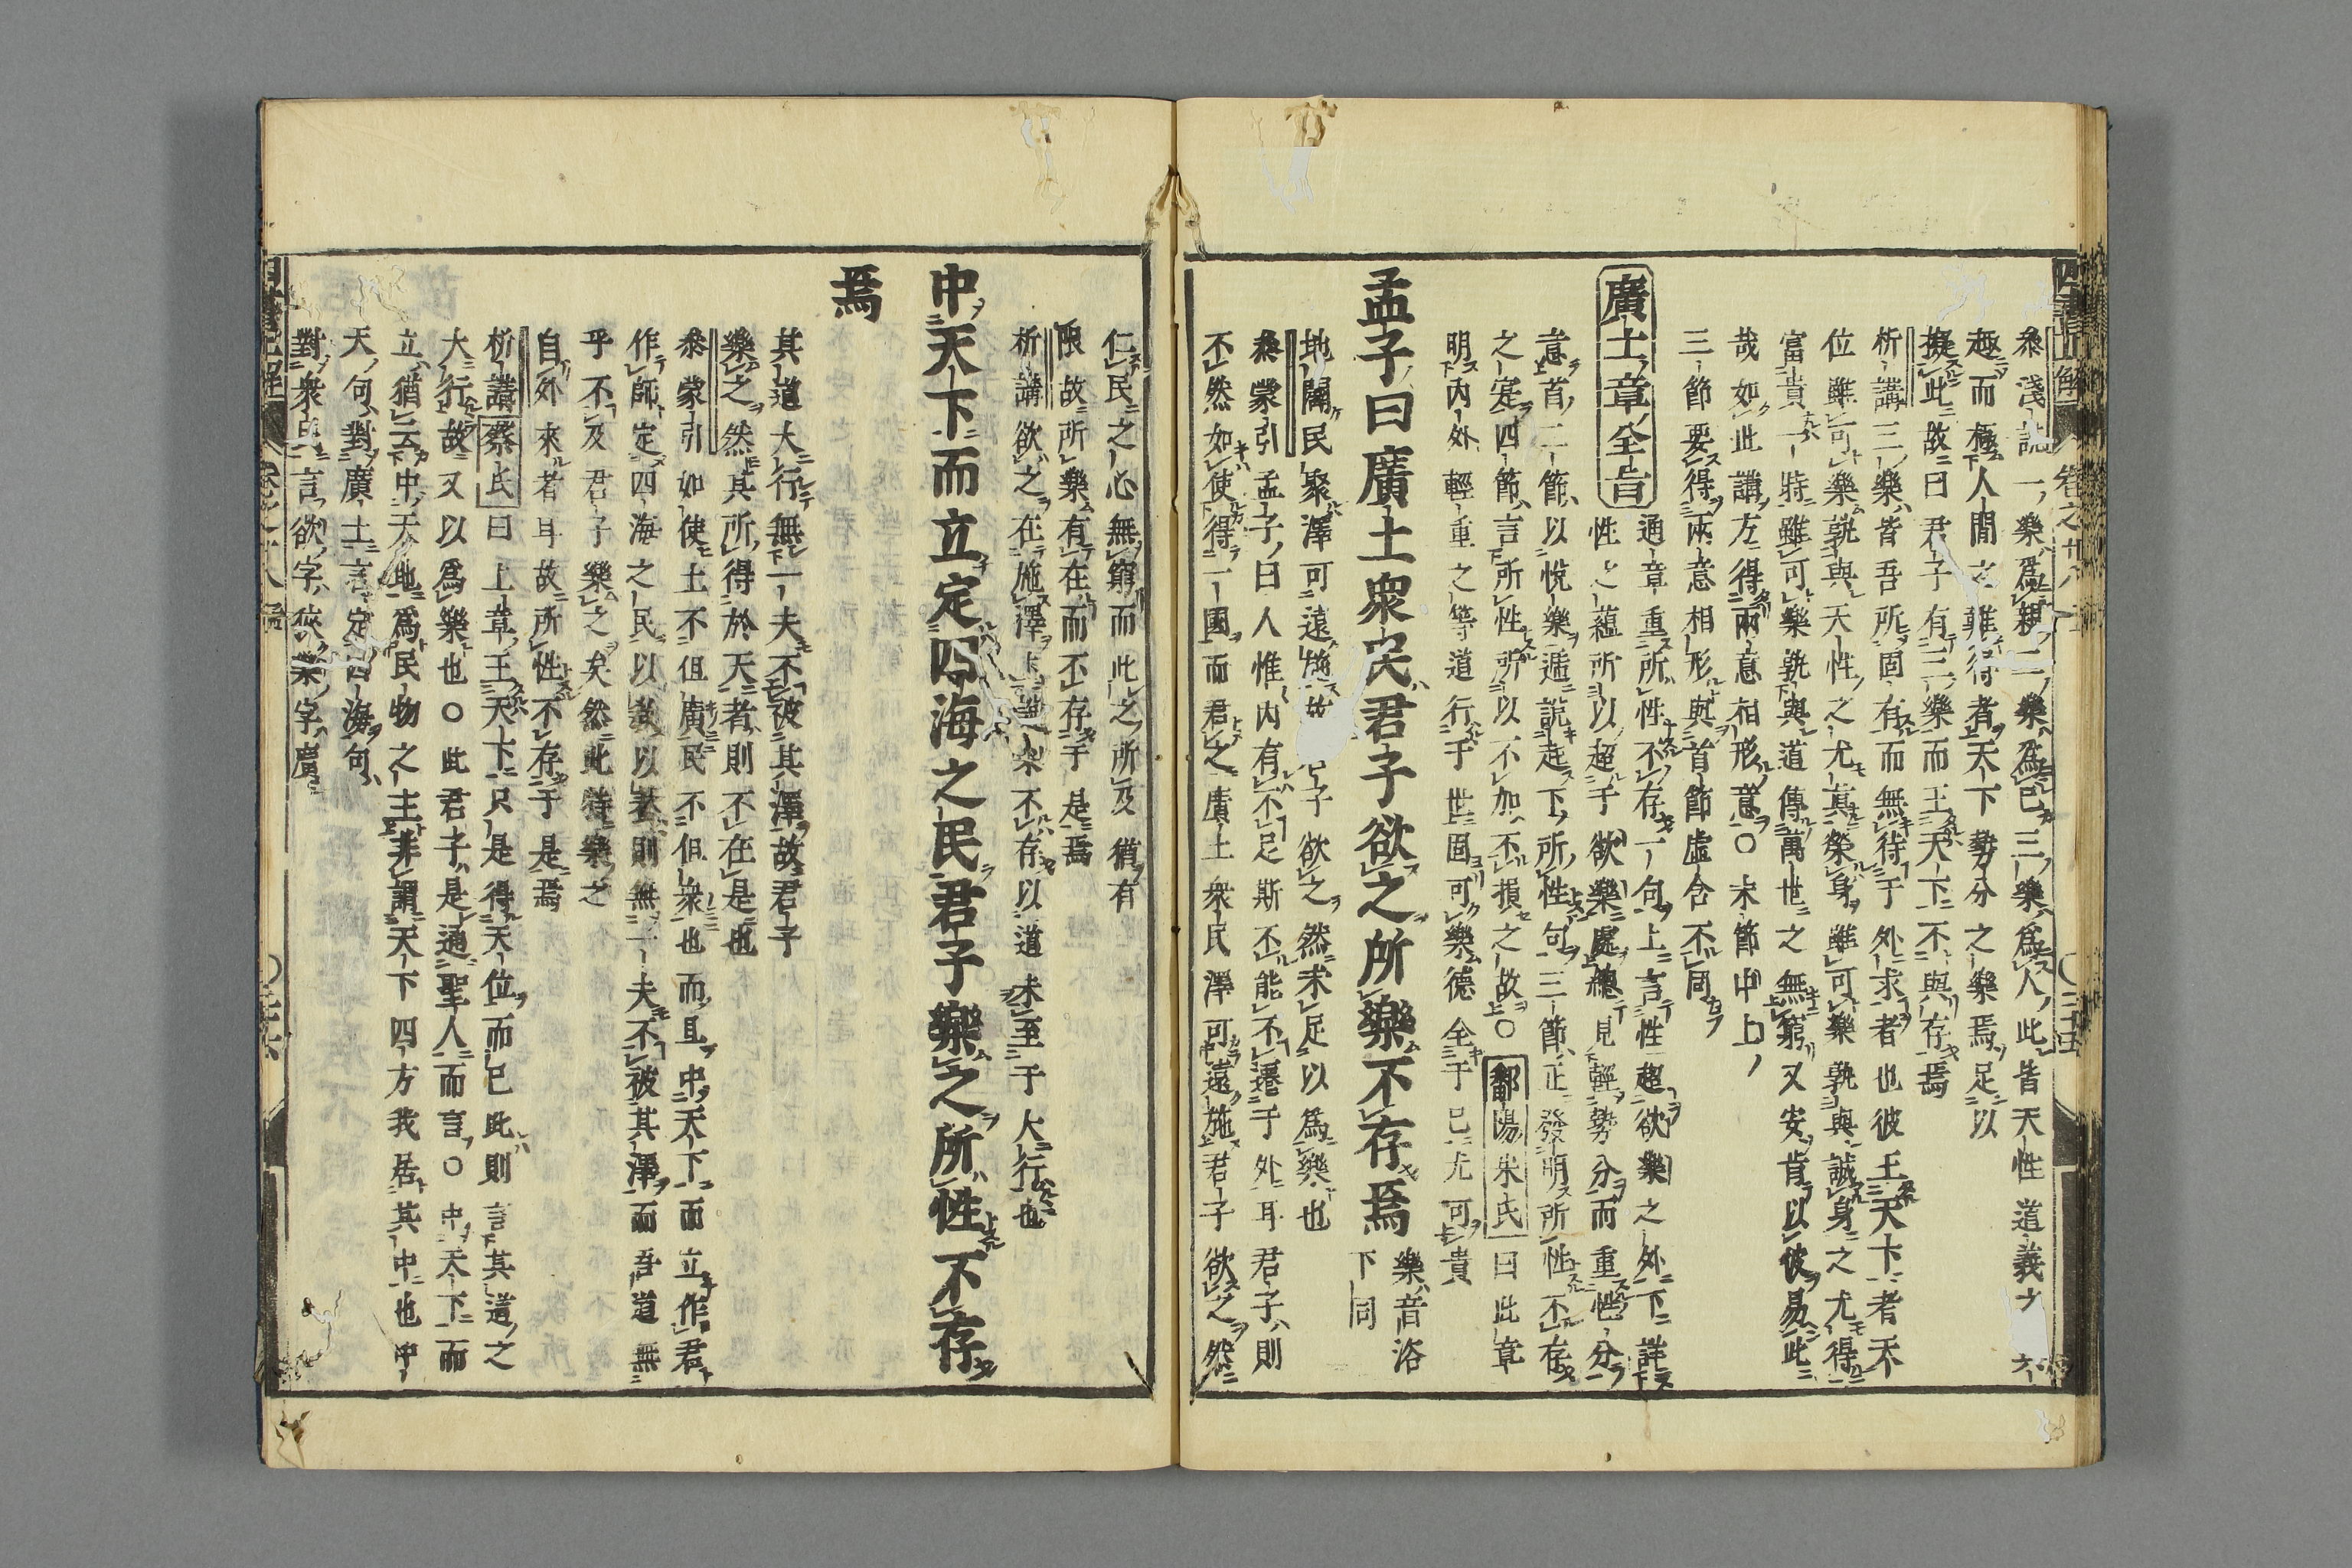 參淺說一樂爲親二樂爲己三樂爲人此皆天性道義之
趣而極人間之難得者天下勢分之樂焉足以
擬此故曰君子有三樂而王天下不與存焉
析講三樂皆吾所固有而無待于外求者也彼王天下者天
位雖可樂孰與天性之尤眞榮身雖可樂孰與誠身之尤得
富貴一時雖可樂孰與道傳萬世之無窮又安肯以彼易此
哉如此講方得兩意相形意○末節中上
三節要得兩意相形與首節虛含不同
廣土章全旨
通章重所性不存一句上言性超欲樂之外下詳
性之蘊所以超于欲樂處總見輕勢分而重性分
意首二節以悅樂遞說起下所性句三節正發明所性不存
之寔四節言所性所以不加不損之故○鄱陽朱氏曰此章
明內外輕重之等道行于世固可樂德全于己尤可貴
孟子曰廣土衆民君子欲之所樂不存焉
樂音洛
下同
地闢民聚澤可遠施故君子欲之然未足以爲樂也
參蒙引孟子曰人惟內有不足斯不能不遷于外耳君子則
不然如使得一國而君之廣土衆民澤可遠施君子欲之然
仁民之心無窮而此之所及猶有
限故所樂有在而不存于是焉
析講欲之在施澤上說樂不存以道未至于大行也
中天下而立定四海之民君子樂之所性不存
焉
其道大行無一夫不被其澤故君子
樂之然其所得於天者則不在是也
參蒙引如使土不但廣民不但衆也而且中天下而立作君
作師定四海之民以養以教則無一夫不被其澤而吾道無
乎不及君子樂之矣然此特樂之
自外來者耳故所性不存于是焉
析講蔡氏曰上章王天下只是得天位而已此則言其道之
大行故又以爲樂也○此君子是通聖人而言○中天下而
立猶云中天地爲民物之主非謂天下四方我居其中也中
天句對廣土言定四海句
對衆民言欲字從樂字廣
四書正解
卷之廿八
三十五
三十六